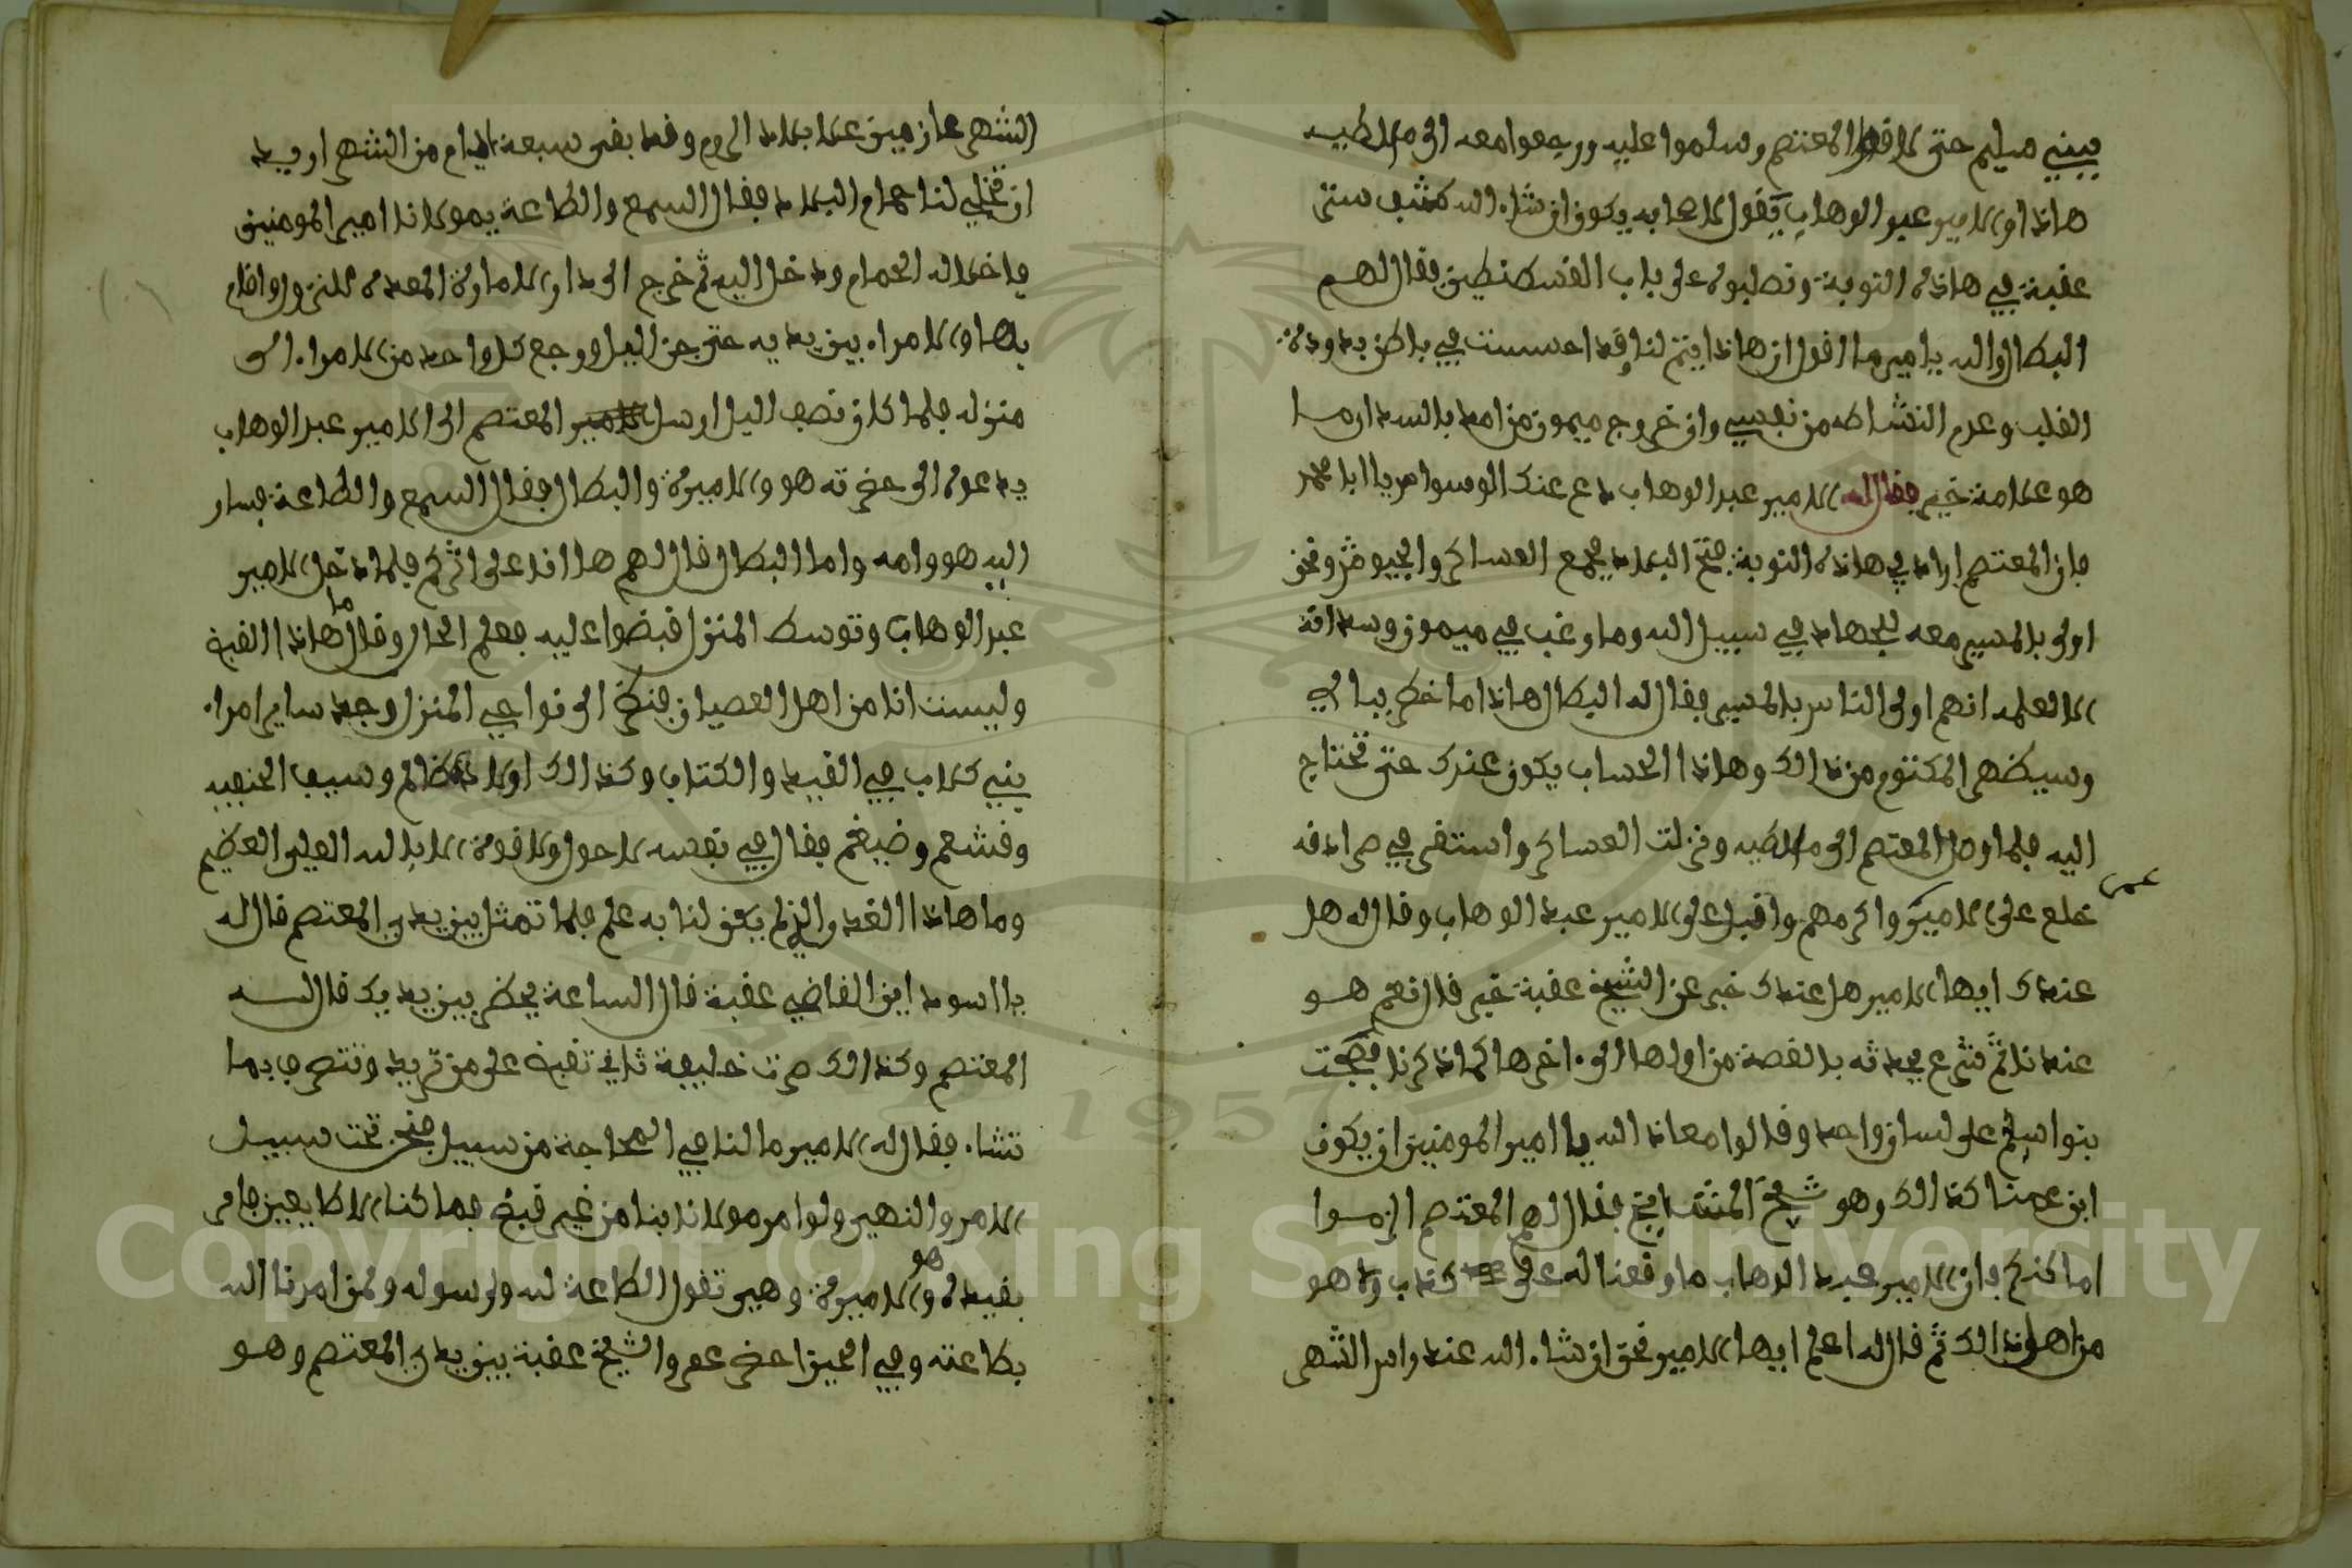 ببني سليم حتى لاقوا المعتصم وسلموا عليه ورجعوا معه الى ملاطيه
هاذا والامير عبد الوهاب يقول لاصحابه يكون ان شاء الله كشف ستر
عقبة في هاذه النوبة ونصلبوه على باب القسطنطين فقال لهم
البطال والله يا امير ما اقول ان هاذا يتم لنا وقد احسست في باطن يدوده
القلب وعدم النشاط من نفسي وان خروج ميمون من امد بالسد ارما
هو علامة خير فقال له الامير عبد الوهاب دع عنك الوسوا من يا ابا محمد
فان المعتصم اراد في هاذه النوبة فتح البلاد يجمع العساكر والجيوش ونحن
اولى بالمسير معه للجهاد في سبيل الله وما رغب في ميمون وسداته
الا لعلمه انهم اولى الناس بالمسير فقال له البطال هاذا ما خطر ببالي
وسيظهر المكتوم من ذالك وهاذا الحساب يكون عندك حتى تحتاج
اليه فلما وصل المعتصم الى ملاطيه ونزلت العساكر واستقر في سرادقه
خلع على الامير عمر واكرمهم واقبل على الامير عبد الوهاب وقال له هل
عندك ايها الامير هل عندك خبر عن الشيخ عقبة خير قال نعم هو
عندنا ثم شرع يحدثه بالقصة من اولها الى اخرها كما ذكرنا فضجت
بنوا سليم على لسان واحد وقالوا معاذ الله يا امير المومنين ان يكون
ابن عمنا كذالك وهو شيخ المشايخ فقال لهم المعتصم الزموا
اماكنكم فان الامير عبد الوهاب ما وقعنا له على كذب ولا هو
من اهل ذالك ثم قال له اعلم ايها الامير نحن ان شاء الله عند راس الشهر
الشهر عازمين على بلاد الروم وقد بقى سبعة ايام من الشهر اريد
ان تخلي لنا حمام البلاد فقال السمع والطاعة يمولانا امير المومنين
فاخلا له الحمام ودخل اليه ثم خرج الى دار الامارة المعدة للنزول واقام
بها والامراء بين يديه حتى جن اليل ورجع كل واحد من الامراء الى
منزله فلما كان نصف اليل ارسل المعتصم الى الامير عبد الوهاب
يدعوه الى حضرته هو والاميرة والبطال فقال السمع والطاعة فسار
اليه هو وامه واما البطال قال لهم ها انا على اثركم فلما دخل الامير
عبد الوهاب وتوسط المنزل قبضوا عليه فعلم الحال وقال ما هاذا القبض
ولست انا من اهل العصيان فنظر الى نواحي المنزل وجد ساير امراء
بني كلاب في القيد والكتاب وكذالك اولاد ظالم وسيف الحنفيه
وقشعم وضيغم فقال في نفسه لا حول ولا قوة الا بالله العلي العظيم
وما هاذا الغدر الذي لم يكن لنا به علم فلما تمثل بين يدي المعتصم قال له
يا اسود اين القاضي عقبة قال الساعة يحضر بين يديك قال له
المعتصم وكذالك صرت خليفة ثاني تقبض على من تريد وتتصرف بما
تشاء فقال له الامير ما لنا في المحاجة من سبيل نحن تحت سبيل
الامر والنهي ولو امر مولانا بنا من غير قبض فما كنا الا طايعين فامر
بقيده هو والاميرة وهي تقول الطاعة لله ولرسوله ولمن امرنا الله
بطاعته وفي الحين احضر عمر والشيخ عقبة بين يدي المعتصم وهو